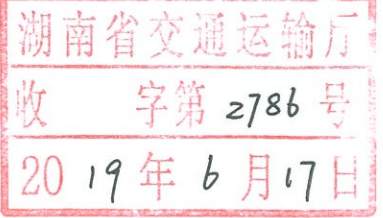 湖南省交通运输厅
收 字第 2786 号
20 19 年 6 月 17 日